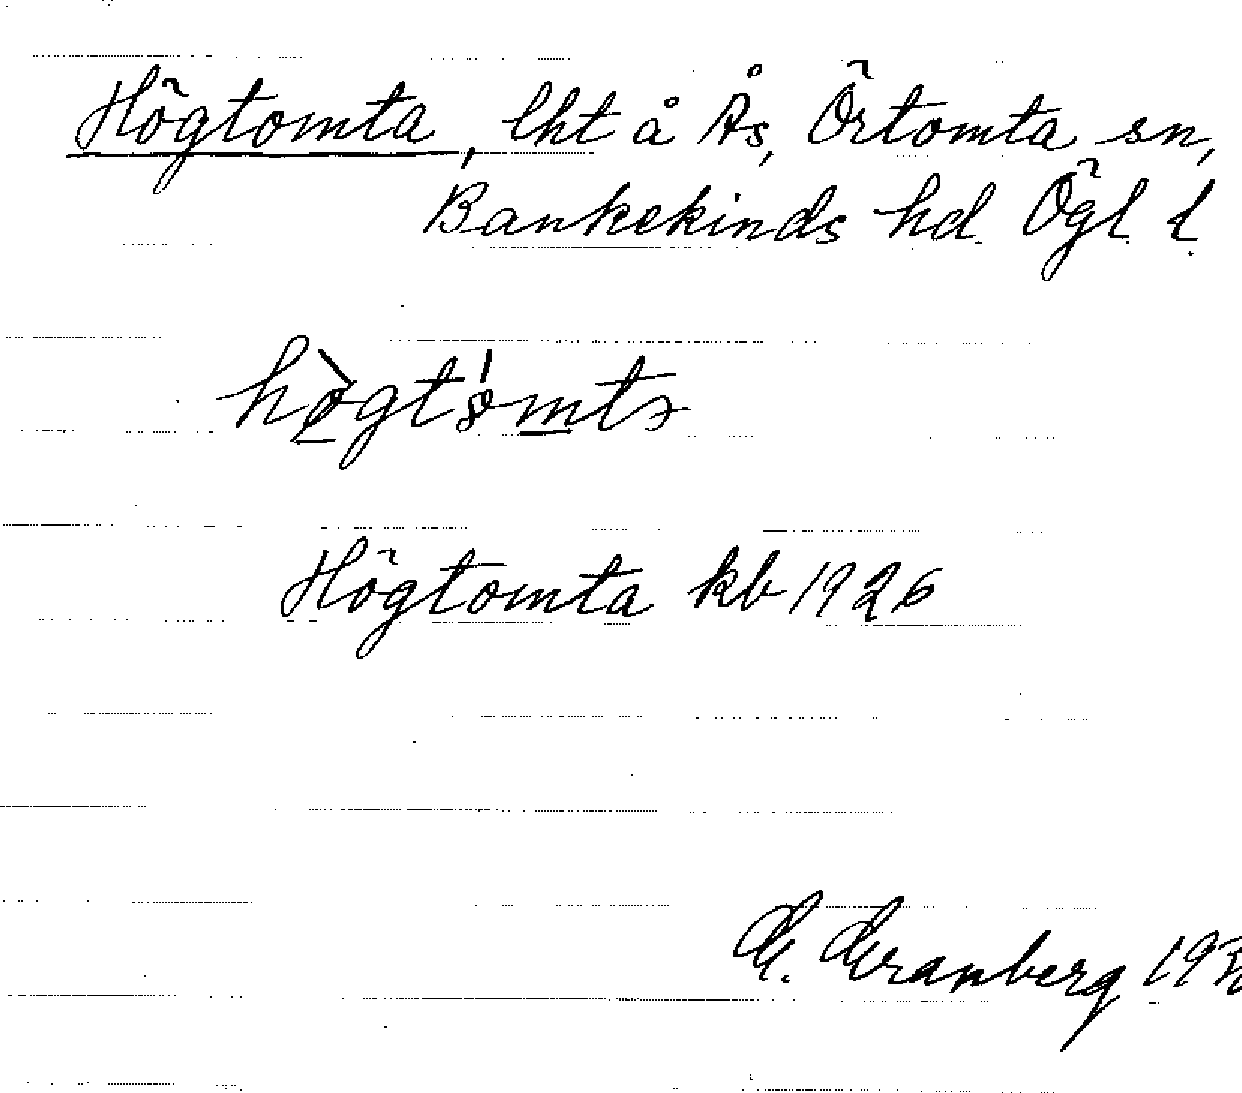 Högtomta, lht å Ås, Örtomta sn,
Bankekinds hd. Ögl. l.
Högtomta kb 1926
G. Granberg 193